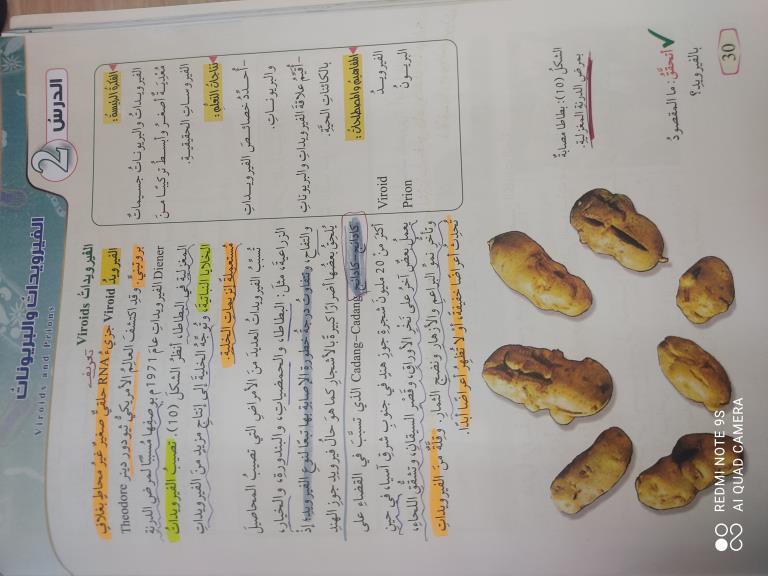 الدرس 2
الفيرويدات والبريونات
Viroids and Prions
الفكرة الرئيسة:
الفيرويدات والبريونات جسيمات
مُعْدِيَة أصغر وأبسط تركيبًا من
الفيروسات الحقيقية.
نتاجات التعلم:
- أحدد خصائص الفيرويدات
والبريونات.
- أقيّم علاقة الفيرويدات والبريونات
بالكائنات الحية.
المفاهيم والمصطلحات:
الفيرويد Viroid
البريون Prion
الفيرويدات Viroids
تعريف
الفيرويد Viroid جزيء RNA حلقي صغير غير محاط بغلاف
بروتيني. وقد اكتشف العالم الأمريكي ثيودور دينر Theodore
Diener الفيرويدات عام 1971م بوصفها مسببًا لمرض الدرنة
المغزلية في البطاطا، أنظر الشكل (10). تصيب الفيرويدات
الخلايا النباتية، وتوجه الخلية إلى إنتاج مزيد من الفيرويدات
مستعملة إنزيمات الخلية.
تسبب الفيرويدات العديد من الأمراض التي تصيب المحاصيل
الزراعية، مثل: البطاطا، والحمضيات، والبندورة، والخيار،
والتفاح، وتتفاوت درجة خطورة الإصابة بها تبعًا لنوع الفيرويد؛ إذ
يلحق بعضها أضرارًا كبيرة بالأشجار كما هو حال فيرويد جوز الهند
كادانج – كادانج Cadang-Cadang الذي تسبب في القضاء على
أكثر من 20 مليون شجرة جوز هند في جنوب شرق آسيا، في حين
يعمل بعض آخر على تحز الأوراق، وقصر السيقان، وتشقق اللحاء،
وتأخر نمو البراعم والأزهار ونضج الثمار. وقلة من الفيرويدات
تُحدِث أعراضًا خفيفة، أو لا تظهر أعراضًا أبدًا.
الشكل (10): بطاطا مصابة
بمرض الدرنة المغزلية.
أتحقق: ما المقصود
بالفيرويد؟
30
REDMI NOTE 9S
AI QUAD CAMERA